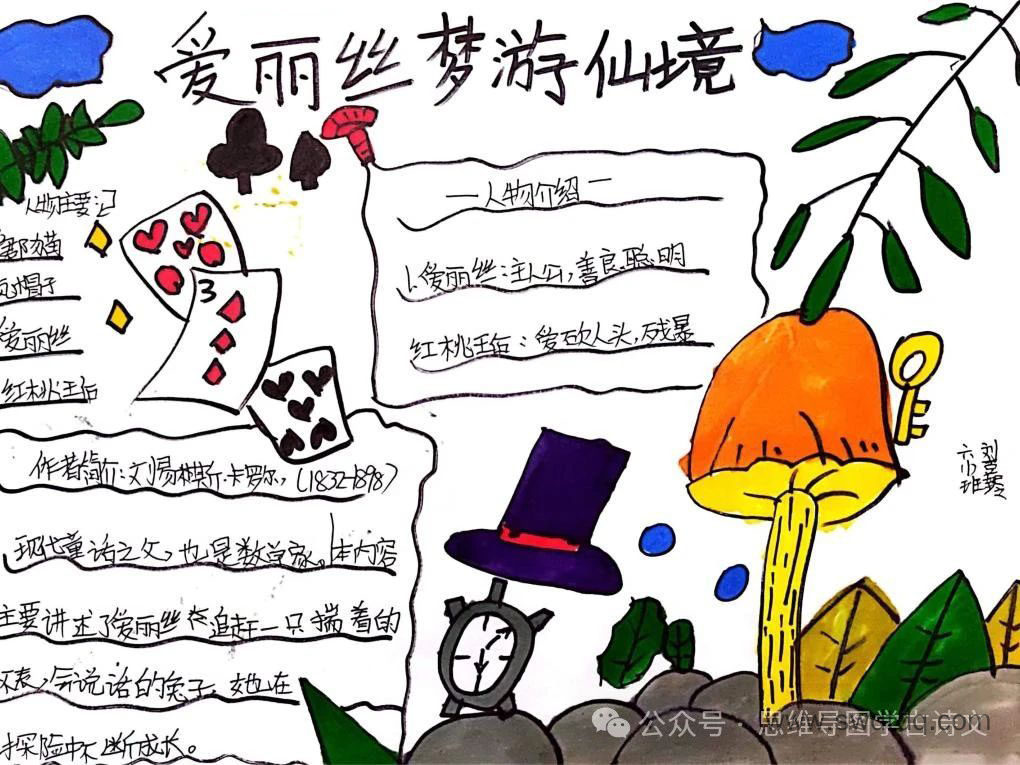 爱丽丝梦游仙境
人物主要记
郡猫
帽子
爱丽丝
红桃王后
一人物介绍一
1.爱丽丝:主人公,善良,聪明
红桃王后:爱砍人头,残暴
3
作者简介:刘易斯·卡罗尔,(1832-1898)
现代童话之父,也是数学家。本内容
主要讲述了爱丽丝在追赶一只揣着的
怀表,会说话的兔子,她在
探险中不断成长。
公众号·思维导图学古诗文